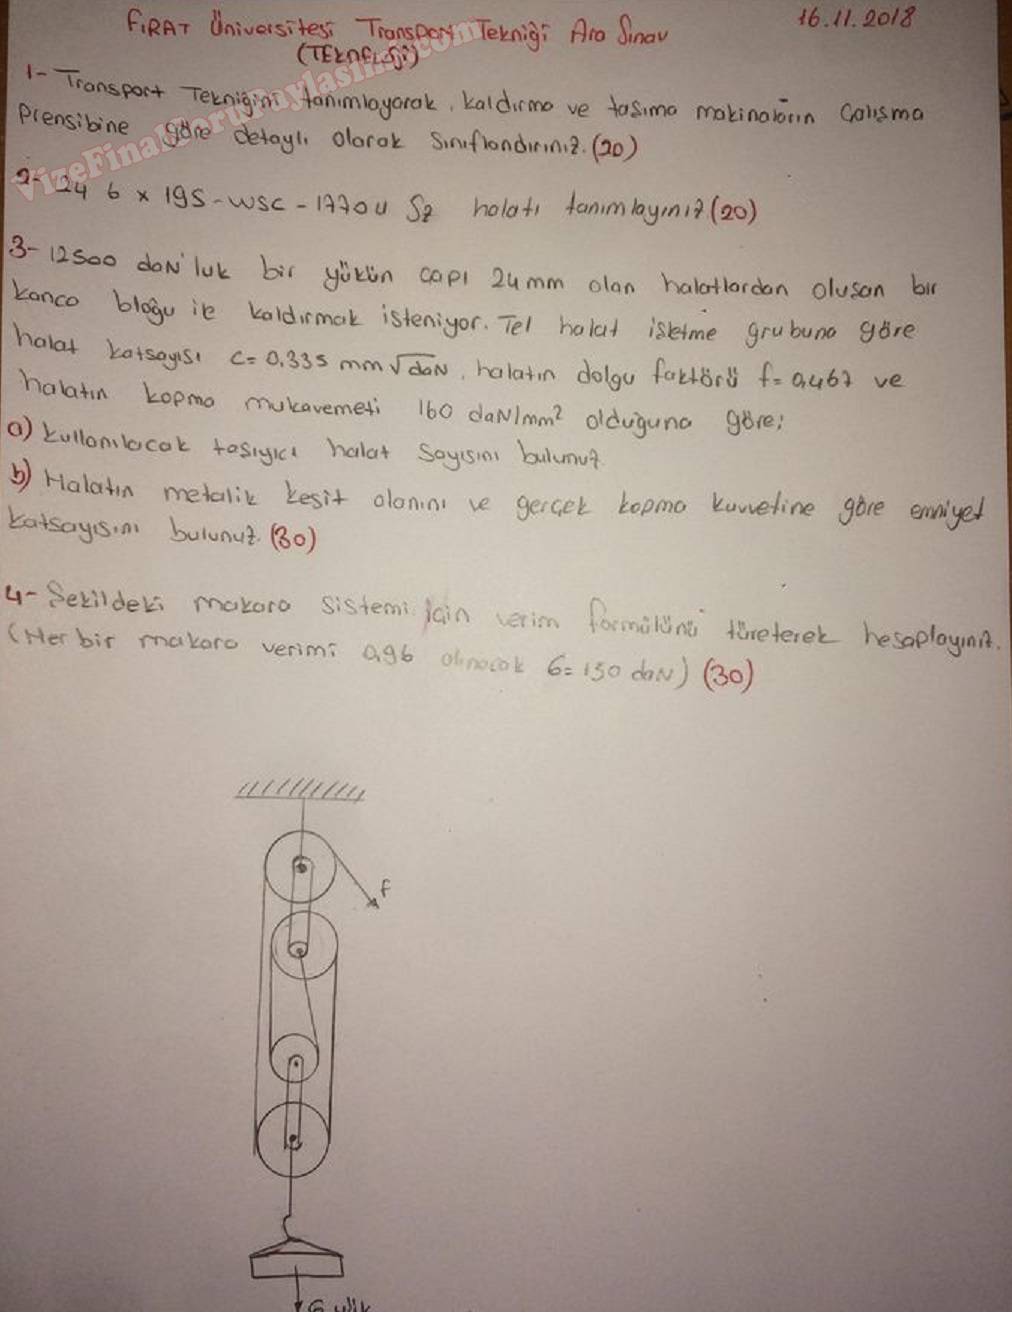 FIRAT Üniversitesi Transport Tekniği Ara Sınav 16.11.2018
(TEknoloji)
1- Transport Tekniğini tanımlayarak, kaldırma ve taşıma makinaların Çalışma
Prensibine göre detaylı olarak Sınıflandırınız. (20)
2- 24 6 x 19S - WSC - 1770 U Sz halatı tanımlayınız (20)
3- 12500 daN'luk bir yükün çapı 24 mm olan halatlardan oluşan bir
kanca bloğu ile kaldırmak isteniyor. Tel halat işletme grubuna göre
halat katsayısı c= 0,335 mm√daN, halatın dolgu faktörü f= 0,467 ve
halatın kopma mukavemeti 160 daN/mm² olduğuna göre;
a) kullanılacak taşıyıcı halat sayısını bulunuz
b) Halatın metalik kesit alanını ve gerçek kopma kuvvetine göre emniyet
katsayısını bulunuz. (30)
4- Şekildeki makara sistemi için verim formülünü türeterek hesaplayınız.
(Her bir makara verimi 0,96 alınacak G= 150 daN) (30)
F
G yük
VizeFinalSoruPaylasimi.com